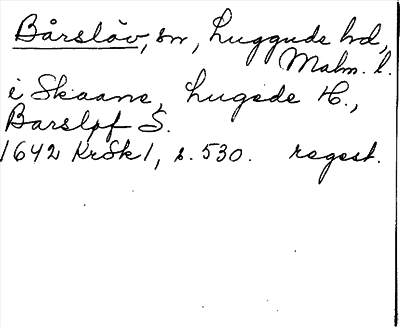 Bårslöv, sn, Luggude hd,
Malm. l.
i Skaane, Lugede H.,
Barsløf S.
1642 KrSk1, s. 530. regest.